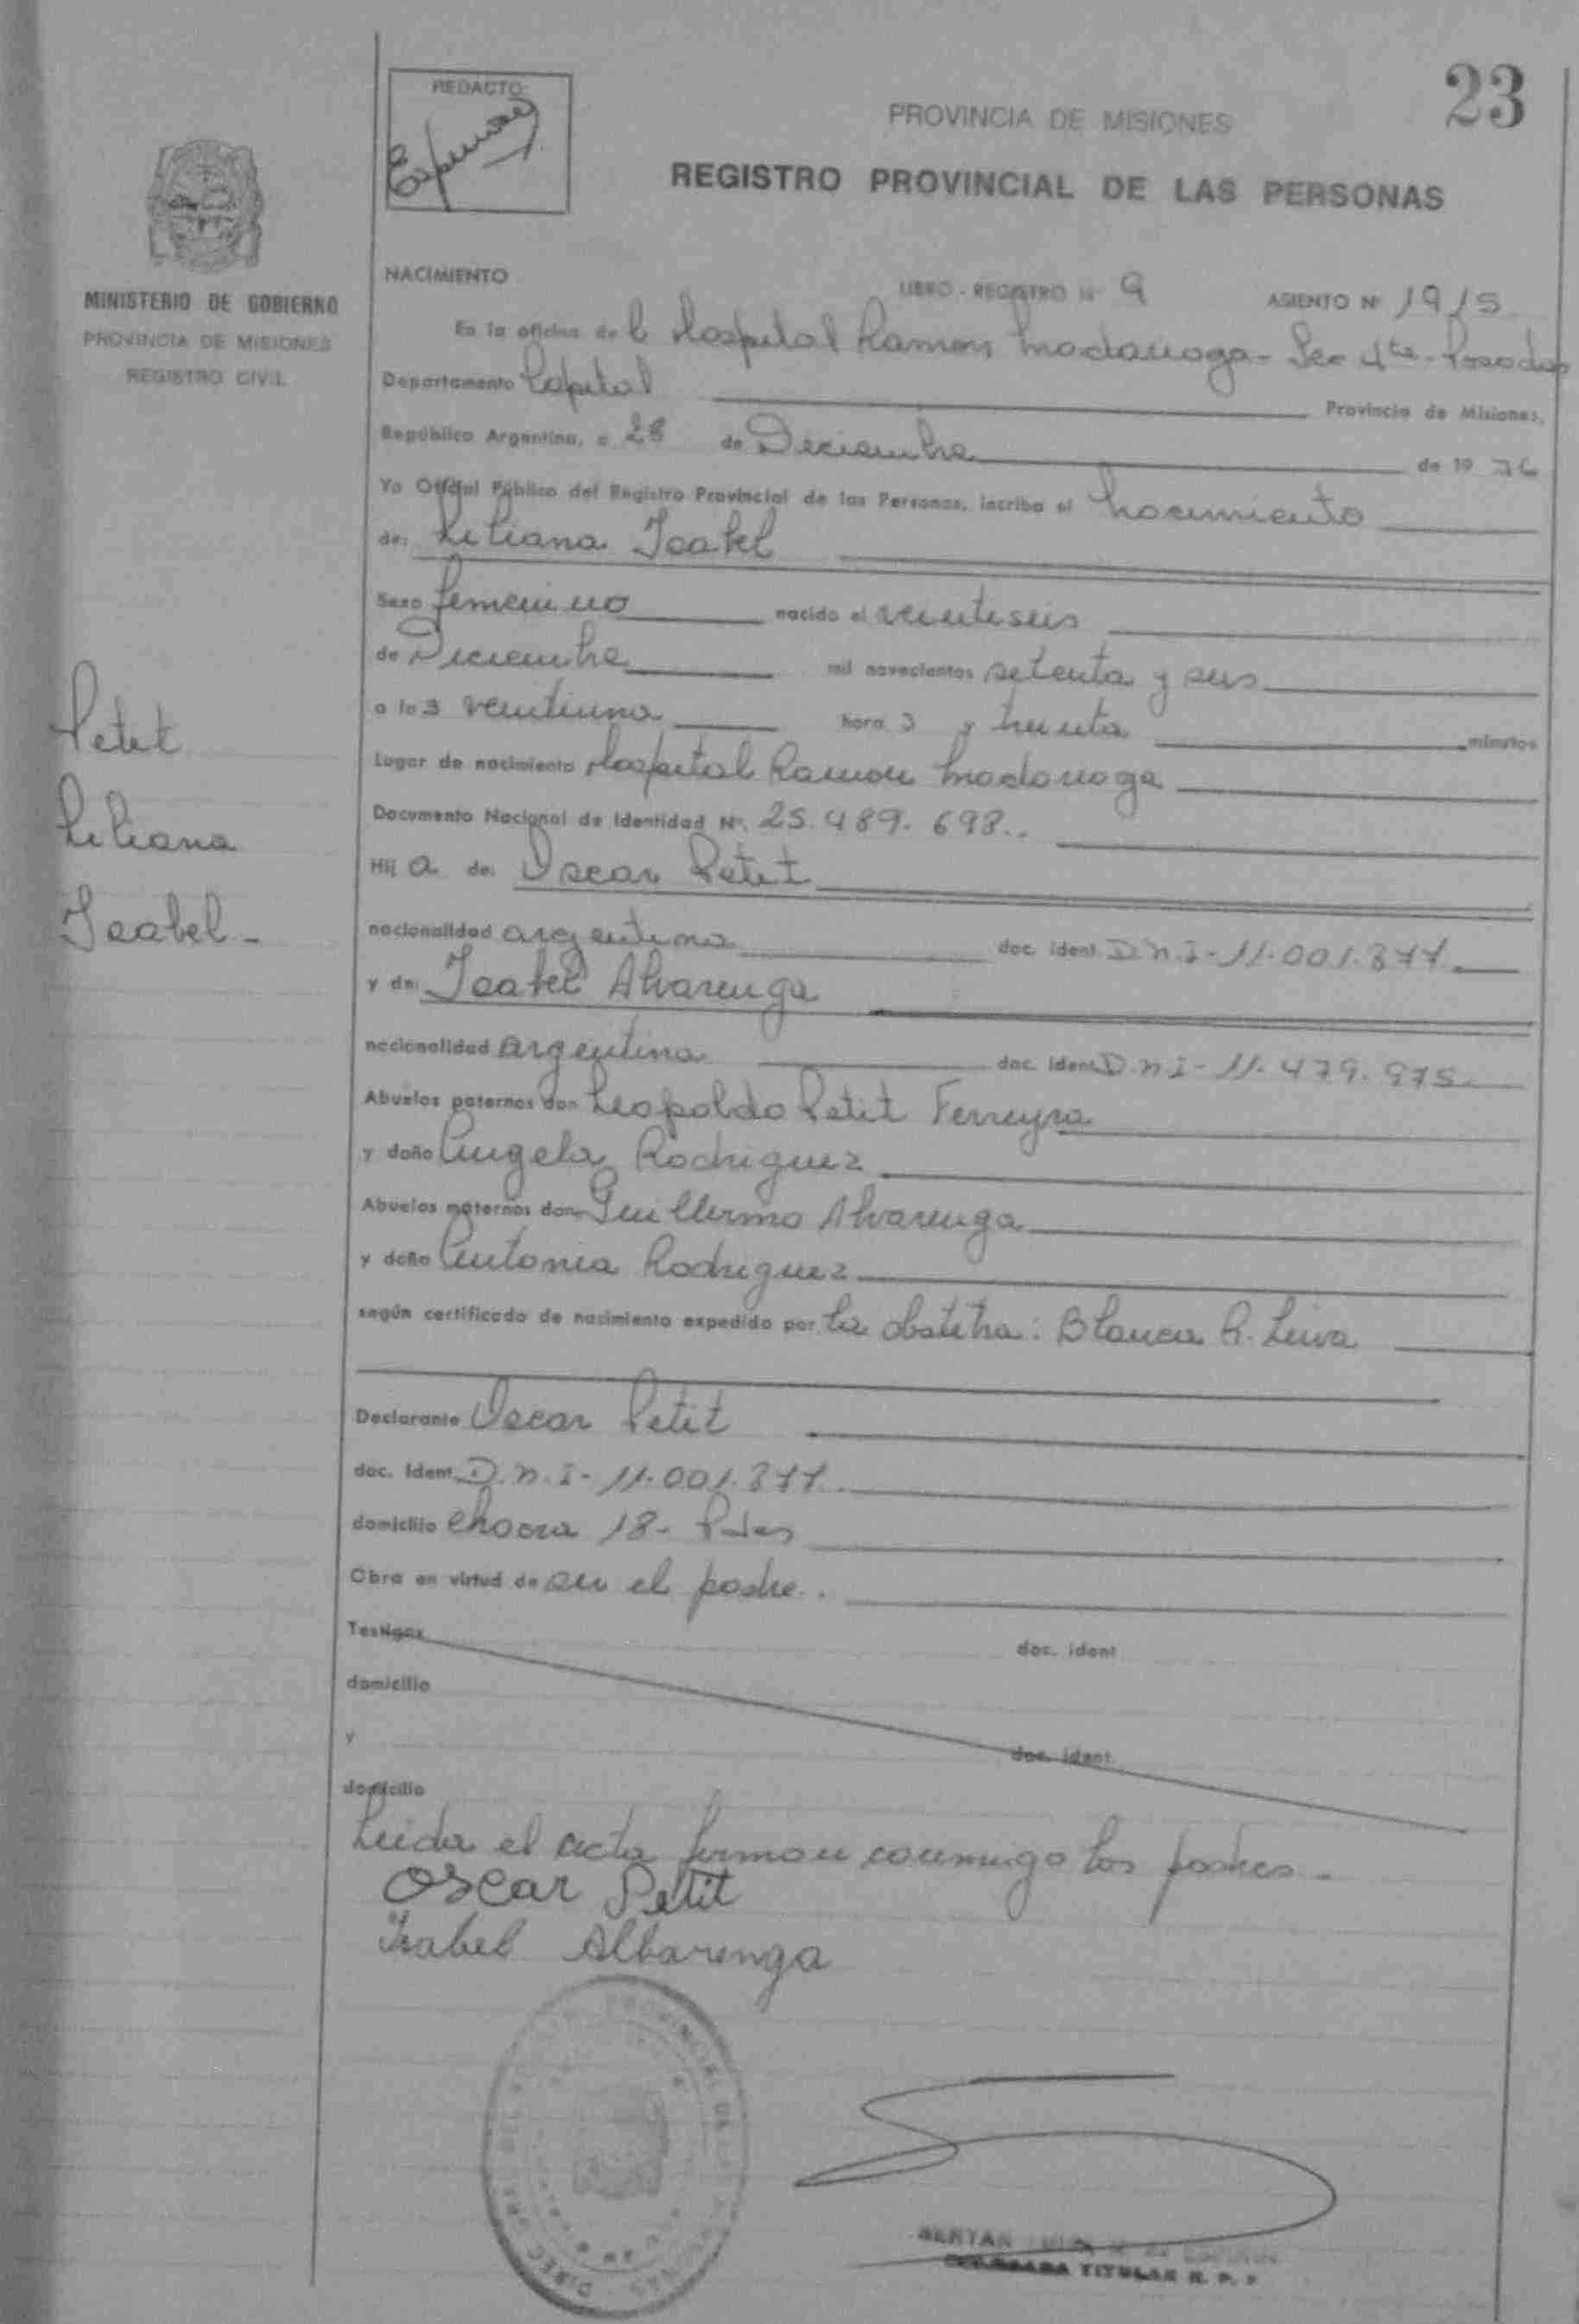 23
REDACTO:
PROVINCIA DE MISIONES
REGISTRO PROVINCIAL DE LAS PERSONAS
MINISTERIO DE GOBIERNO
PROVINCIA DE MISIONES
REGISTRO CIVIL
NACIMIENTO LIBRO - REGISTRO Nº 9 ASIENTO Nº 1915
En la oficina del Hospital Ramon Madariaga - Sec 4ta - Posadas
Departamento Capital Provincia de Misiones,
República Argentina, a 28 de Diciembre de 19 76
Yo Oficial Público del Registro Provincial de las Personas, incribo el nacimiento
de: Liliana Isabel
Sexo femenino nacido el veintiseis
de Diciembre mil novecientos setenta y seis
a las veintiuna horas y treinta minutos
Lugar de nacimiento Hospital Ramon Madariaga
Documento Nacional de Identidad Nº. 25.489.698..
Hij a de: Oscar Petit
nacionalidad argentina doc. ident. D.N.I - 11.001.377
y de: Isabel Alvarenga
nacionalidad argentina doc. ident. D.N.I - 11.479.975
Abuelos paternos don Leopoldo Petit Ferreyra
y doña Angela Rodriguez
Abuelos maternos don Guillermo Alvarenga
y doña Antonia Rodriguez
según certificado de nacimiento expedido por la obstetra: Blanca R. Leiva
Declarante Oscar Petit
doc. Ident. D.N.I - 11.001.377.
domicilio chacra 18 - Pdas
Obra en virtud de ser el padre.
Testigos doc. ident
domicilio
y doc. ident.
domicilio
Leida el acta firman conmigo los padres -
Oscar Petit
Isabel Albarenga
Petit
Liliana
Isabel -
TITULAR R. P.